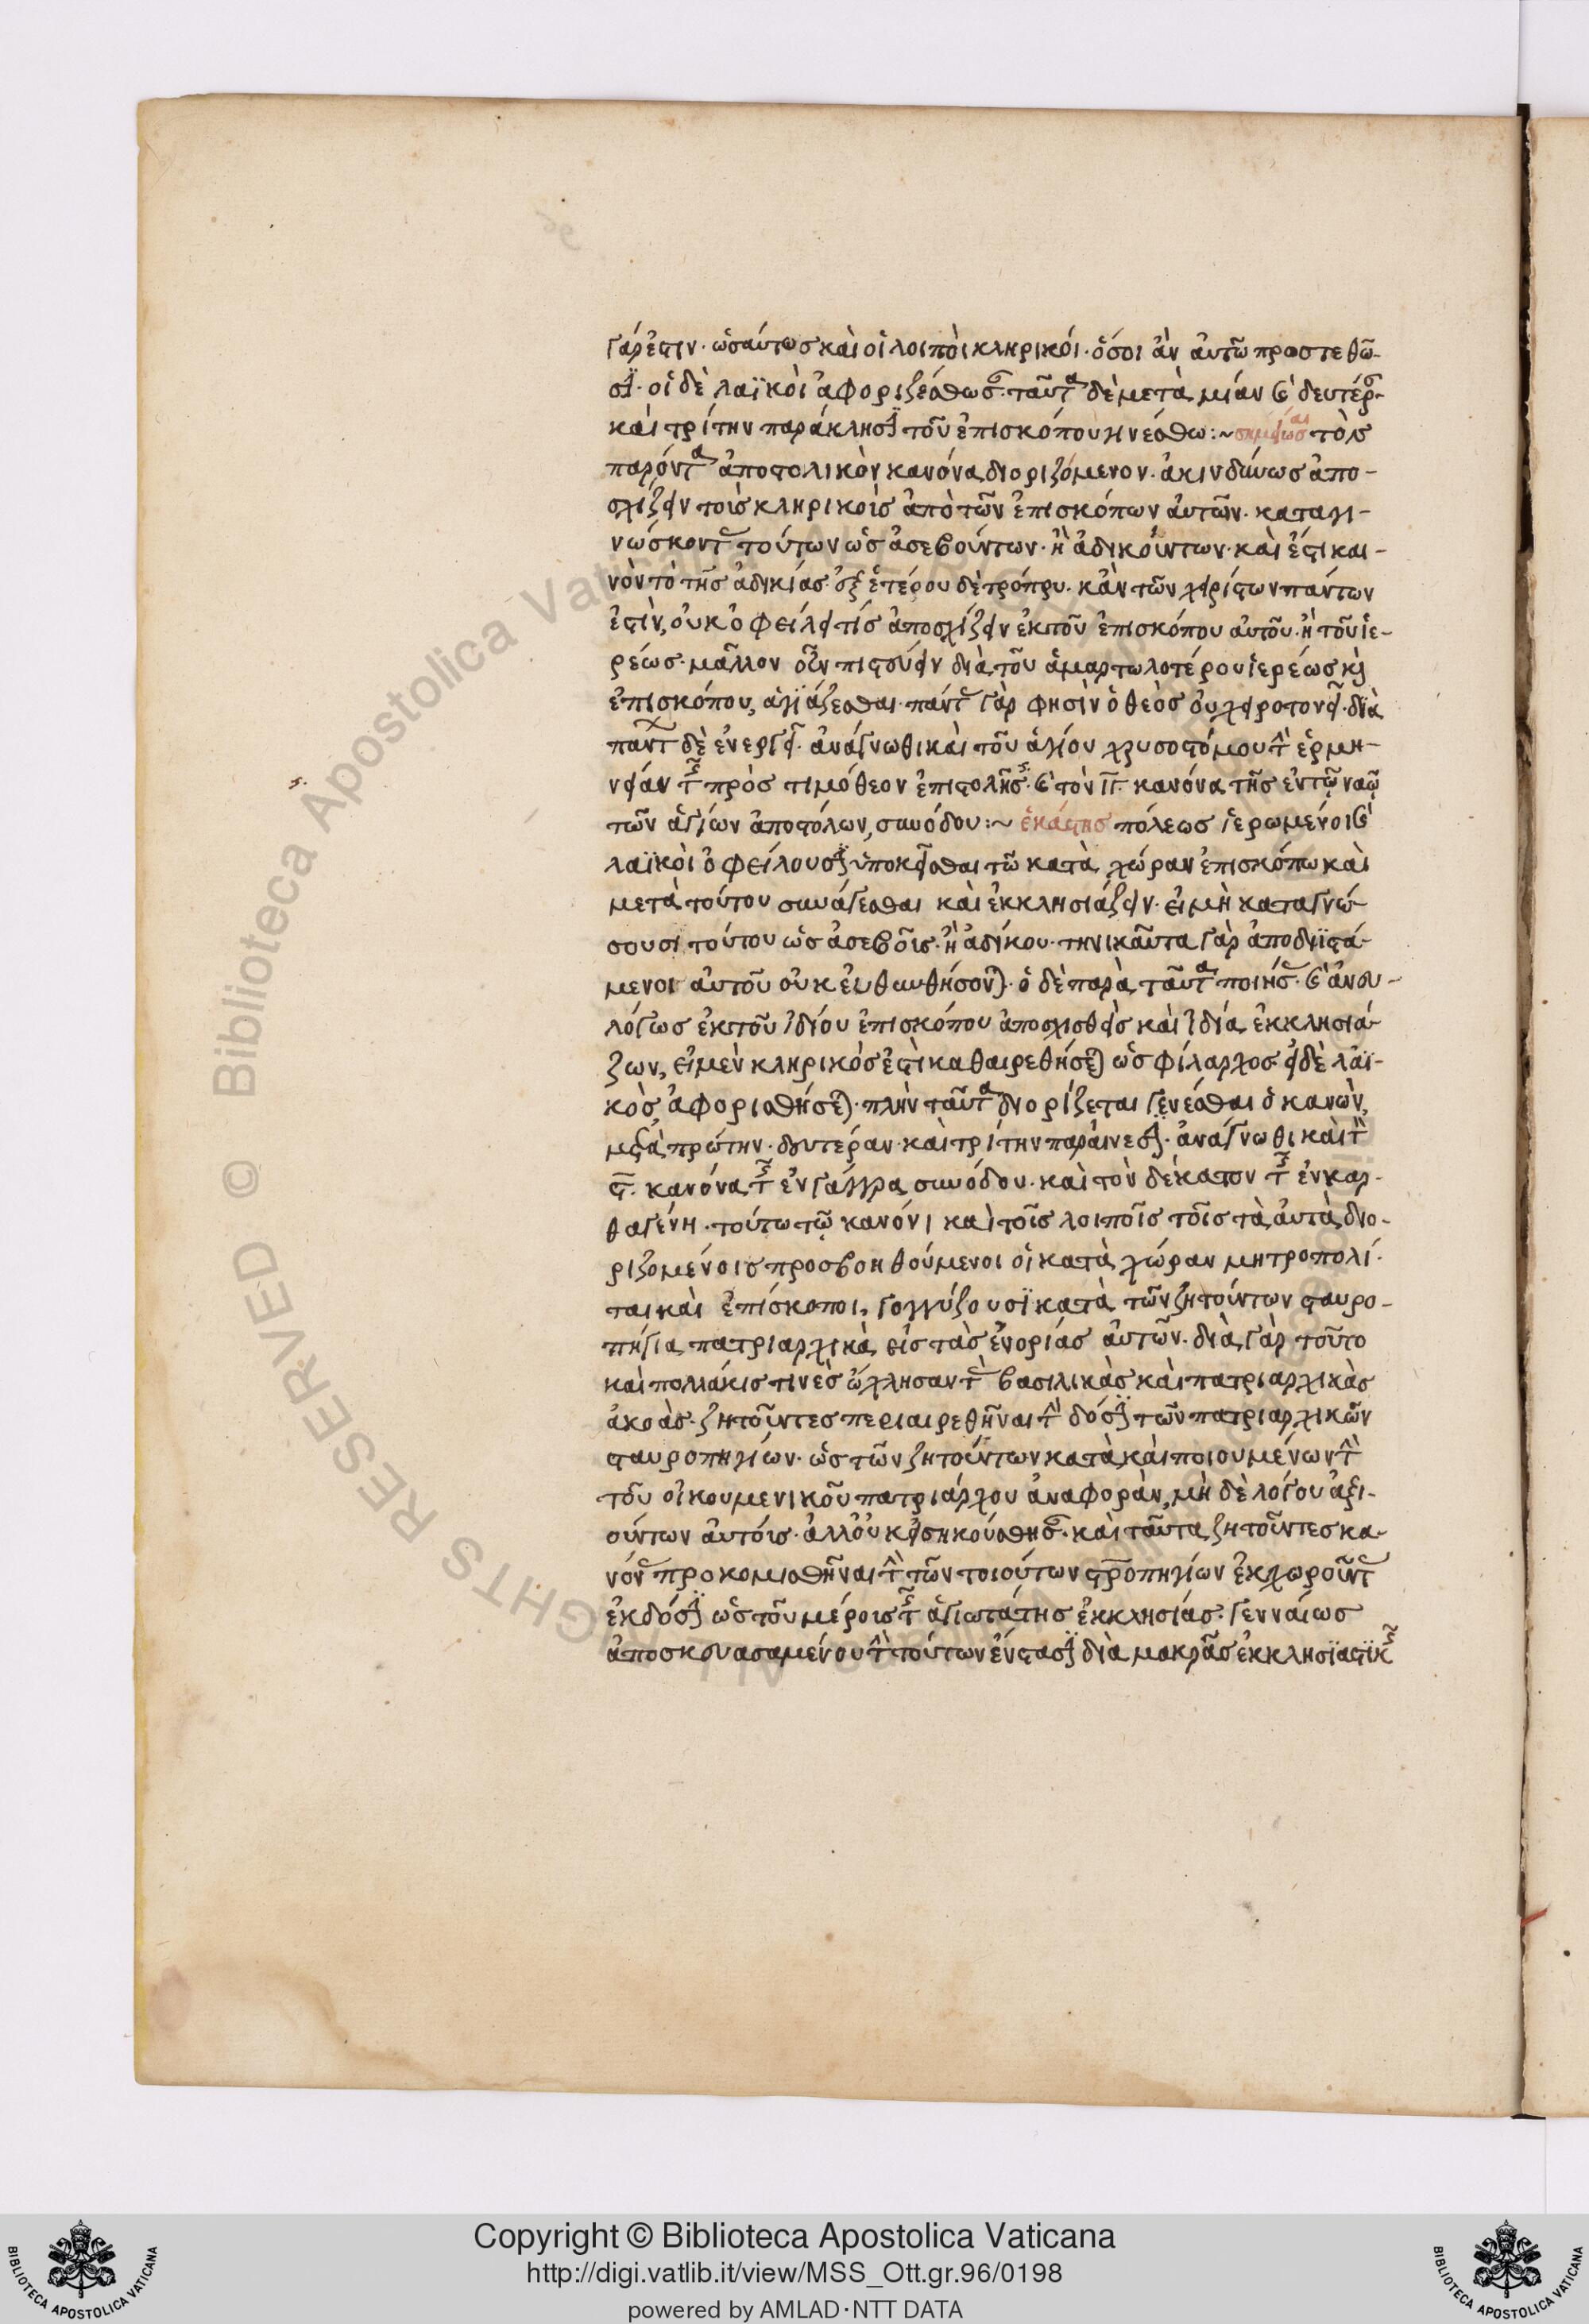 γάρ ἐστιν· ὡσαύτως καὶ οἱ λοιποὶ κληρικοί· ὅσοι ἂν αὐτῶ προστεθῶ-
σϊ· οἱ δὲ λαϊκοὶ ἀφοριζέσθωσ(αν)· ταῦτα δὲ μετὰ μίαν καὶ δευτέρ(αν)
καὶ τρίτην παράκλησϊ(ν) τοῦ ἐπισκόπου γινέσθω:~ σημείωσαι τὸν
παρόντα ἀποστολικὸν κανόνα διοριζόμενον· ἀκινδύνως ἀπο-
σχίζειν τοῖς κληρικοῖς ἀπὸ τῶν ἐπισκόπων αὐτῶν· καταγι-
νώσκοντ(ες) τούτων ὡς ἀσεβούντων· ἢ ἀδικούντων· καὶ ἔστι και-
νὸν τὸ τῆς ἀδικίας· ἐξ ἑτέρου δὲ τρόπου· κἂν τῶν χειρίστων πάντων
ἐστὶν, οὐκ ὀφείλει τίς ἀποσχίζειν ἐκ τοῦ ἐπισκόπου αὐτοῦ· ἢ τοῦ ἱε-
ρέως· μᾶλλον οὖν πιστεύειν διὰ τοῦ ἁμαρτωλοτέρου ἱερέως κὶ
ἐπισκόπου, ἁγιάζεσθαι· πάντ(ας) γὰρ φησὶν ὁ θεὸς οὐ χειροτονεῖ· διὰ
πάντ(ων) δὲ ἐνεργεῖ· ἀνάγνωθι καὶ τοῦ ἁγίου χρυσοστόμου τ(ὴν) ἑρμη-
νείαν τ(ῆς) πρὸς τιμόθεον ἐπιστολῆς· καὶ τὸν ιγ. κανόνα τῆς ἐν τῶ ναῶ
τῶν ἁγίων ἀποστόλων, συνόδου:~ ἑκάστης πόλεως ἱερωμένοι καὶ
λαϊκοὶ ὀφείλουσϊν ὑποκεῖσθαι τῶ κατὰ χώραν ἐπισκόπω καὶ
μετὰ τούτου συνάγεσθαι καὶ ἐκκλησιάζειν· εἰ μὴ καταγνώ-
σουσι τούτου ὡς ἀσεβοῖς· ἢ ἀδίκου· τηνικαῦτα γὰρ ἀποδιϊστά-
μενοι αὐτοῦ οὐκ εὐθυνθήσον(ται)· ὁ δὲ παρὰ ταῦτα ποιήσ(ας)· καὶ ἀνευ-
λόγως ἐκ τοῦ ἰδίου ἐπισκόπου ἀποσχισθεὶς καὶ ἰδία ἐκκλησιά-
ζων, εἰ μὲν κληρικός ἐστὶ καθαιρεθήσε(ται) ὡς φίλαρχος· εἰ δὲ λαϊ-
κὸς ἀφορισθήσε(ται)· πλὴν ταῦτα διορίζεται γενέσθαι ὁ κανὼν,
μετὰ πρώτην· δευτέραν· καὶ τρίτην παραίνεσϊν· ἀνάγνωθι καὶ τ(ὸν)
ϛ. κανόνα τ(ῆς) ἐν γάγγρα συνόδου· καὶ τὸν δέκατον τ(ῆς) ἐν καρ-
θαγένη· τούτω τῶ κανόνι καὶ τοῖς λοιποῖς τοῖς τὰ αὐτὰ διο-
ριζομένοις προσβοηθούμενοι οἱ κατὰ χώραν μητροπολί-
ται καὶ ἐπίσκοποι, γογγύζουσϊ κατὰ τῶν ζητούντων σταυρο-
πήγια πατριαρχικὰ εἰς τὰς ἐνορίας αὐτῶν· διὰ γὰρ τοῦτο
καὶ πολλάκις τινὲς ὤχλησαν τ(ὰς) βασιλικὰς καὶ πατριαρχικὰς
ἀκοὰς· ζητοῦντες περιαιρεθῆναι τ(ὴν) δόσϊν τῶν πατριαρχικῶν
σταυροπηγίων· ὡς τῶν ζητούντων κατὰ καὶ ποιουμένων τ(ὴν)
τοῦ οἰκουμενικοῦ πατριάρχου ἀναφορὰν, μὴ δὲ λόγου ἀξι-
ούντων αὐτοῖς· ἀλλ' οὐκ εἰσηκούσθησ(αν)· καὶ ταῦτα ζητοῦντες κα-
νόν(ας) προκομισθῆναι τ(ὴν) τῶν τοιούτων στροπηγίων ἐκχωροῦντ(ας)
ἐκδόσϊν ὡς τοῦ μέρους τ(ῆς) ἁγιωτάτης ἐκκλησίας· γενναίως
ἀποσκευασαμένου τ(ὴν) τούτων ἔνστασϊν διὰ μακρᾶς ἐκκλησϊαστϊκ(ῆς)
Copyright © Biblioteca Apostolica Vaticana
http://digi.vatlib.it/view/MSS_Ott.gr.96/0198
powered by AMLAD·NTT DATA